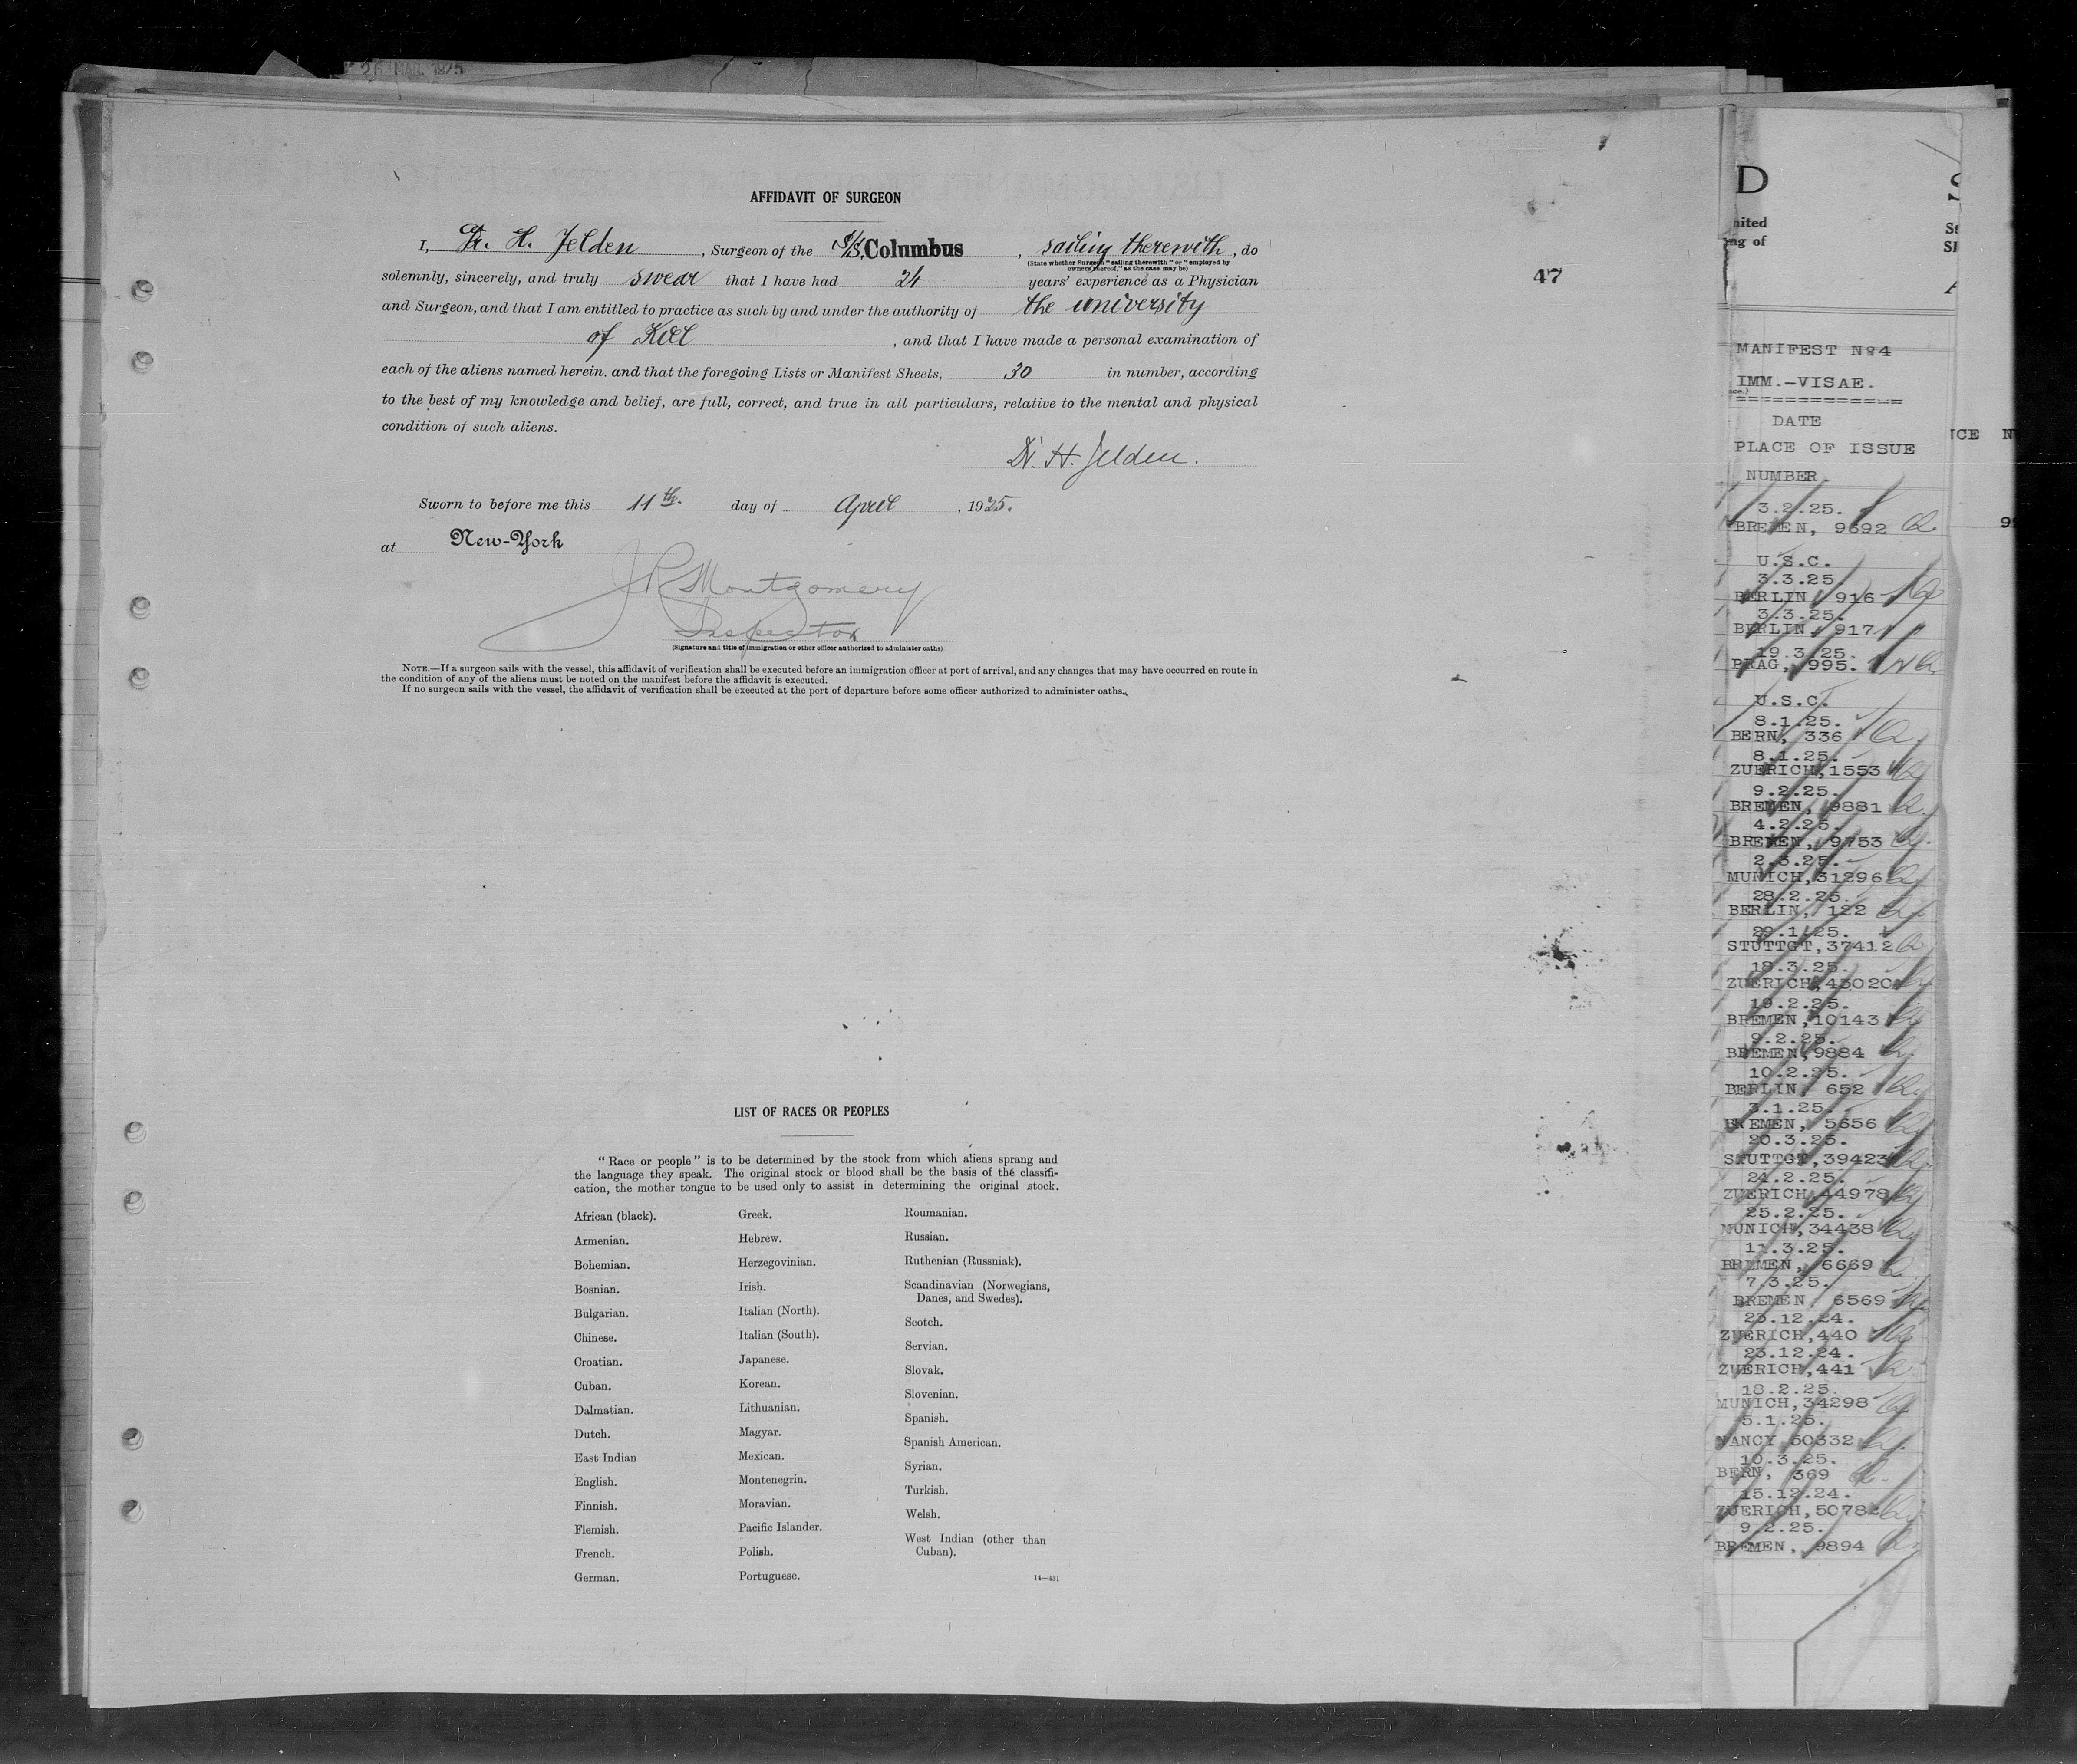 28 MAR. 1925
AFFIDAVIT OF SURGEON
I, Dr. H. Jelden, Surgeon of the S/S. Columbus, sailing therewith, do
(State whether Surgeon "sailing therewith" or "employed by
owners thereof," as the case may be)
solemnly, sincerely, and truly swear that I have had 24 years' experience as a Physician
and Surgeon, and that I am entitled to practice as such by and under the authority of the university
of Kiel, and that I have made a personal examination of
each of the aliens named herein, and that the foregoing Lists or Manifest Sheets, 30 in number, according
to the best of my knowledge and belief, are full, correct, and true in all particulars, relative to the mental and physical
condition of such aliens.
Dr. H. Jelden.
Sworn to before me this 11th. day of April, 1925.
at New-York
J R Montgomery
Inspector
(Signature and title of immigration or other officer authorized to administer oaths)
NOTE.—If a surgeon sails with the vessel, this affidavit of verification shall be executed before an immigration officer at port of arrival, and any changes that may have occurred en route in
the condition of any of the aliens must be noted on the manifest before the affidavit is executed.
If no surgeon sails with the vessel, the affidavit of verification shall be executed at the port of departure before some officer authorized to administer oaths.
47
LIST OF RACES OR PEOPLES
"Race or people" is to be determined by the stock from which aliens sprang and
the language they speak. The original stock or blood shall be the basis of the classifi-
cation, the mother tongue to be used only to assist in determining the original stock.
African (black).
Armenian.
Bohemian.
Bosnian.
Bulgarian.
Chinese.
Croatian.
Cuban.
Dalmatian.
Dutch.
East Indian
English.
Finnish.
Flemish.
French.
German.
Greek.
Hebrew.
Herzegovinian.
Irish.
Italian (North).
Italian (South).
Japanese.
Korean.
Lithuanian.
Magyar.
Mexican.
Montenegrin.
Moravian.
Pacific Islander.
Polish.
Portuguese.
Roumanian.
Russian.
Ruthenian (Russniak).
Scandinavian (Norwegians,
Danes, and Swedes).
Scotch.
Servian.
Slovak.
Slovenian.
Spanish.
Spanish American.
Syrian.
Turkish.
Welsh.
West Indian (other than
Cuban).
14—431
D
nited
ng of
MANIFEST No 4
IMM.-VISAE.
============
DATE
PLACE OF ISSUE
NUMBER.
3.2.25.
BREMEN, 9692
U.S.C.
3.3.25.
BERLIN 916
3.3.25.
BERLIN, 917
19.3.25.
PRAG, 995.
U.S.C.
8.1.25.
BERN, 336
8.1.25.
ZUERICH,1553
9.2.25.
BREMEN, 9881
4.2.25.
BREMEN, 9753
2.3.25.
MUNICH,31296
28.2.25.
BERLIN, 122
29.1.25.
STUTTGT,37412
18.3.25.
ZUERICH,45020
19.2.25.
BREMEN,10143
9.2.25.
BREMEN,9884
10.2.25.
BERLIN, 652
3.1.25.
BREMEN, 5656
20.3.25.
STUTTGT,39423
24.2.25.
ZUERICH,44978
25.2.25.
MUNICH,34438
11.3.25.
BREMEN, 6669
7.3.25.
BREMEN, 6569
23.12.24.
ZUERICH,440
23.12.24.
ZUERICH,441
18.2.25.
MUNICH,34298
5.1.25.
NANCY 50332
10.3.25.
BERN, 369
15.12.24.
ZUERICH,50782
9.2.25.
BREMEN, 9894